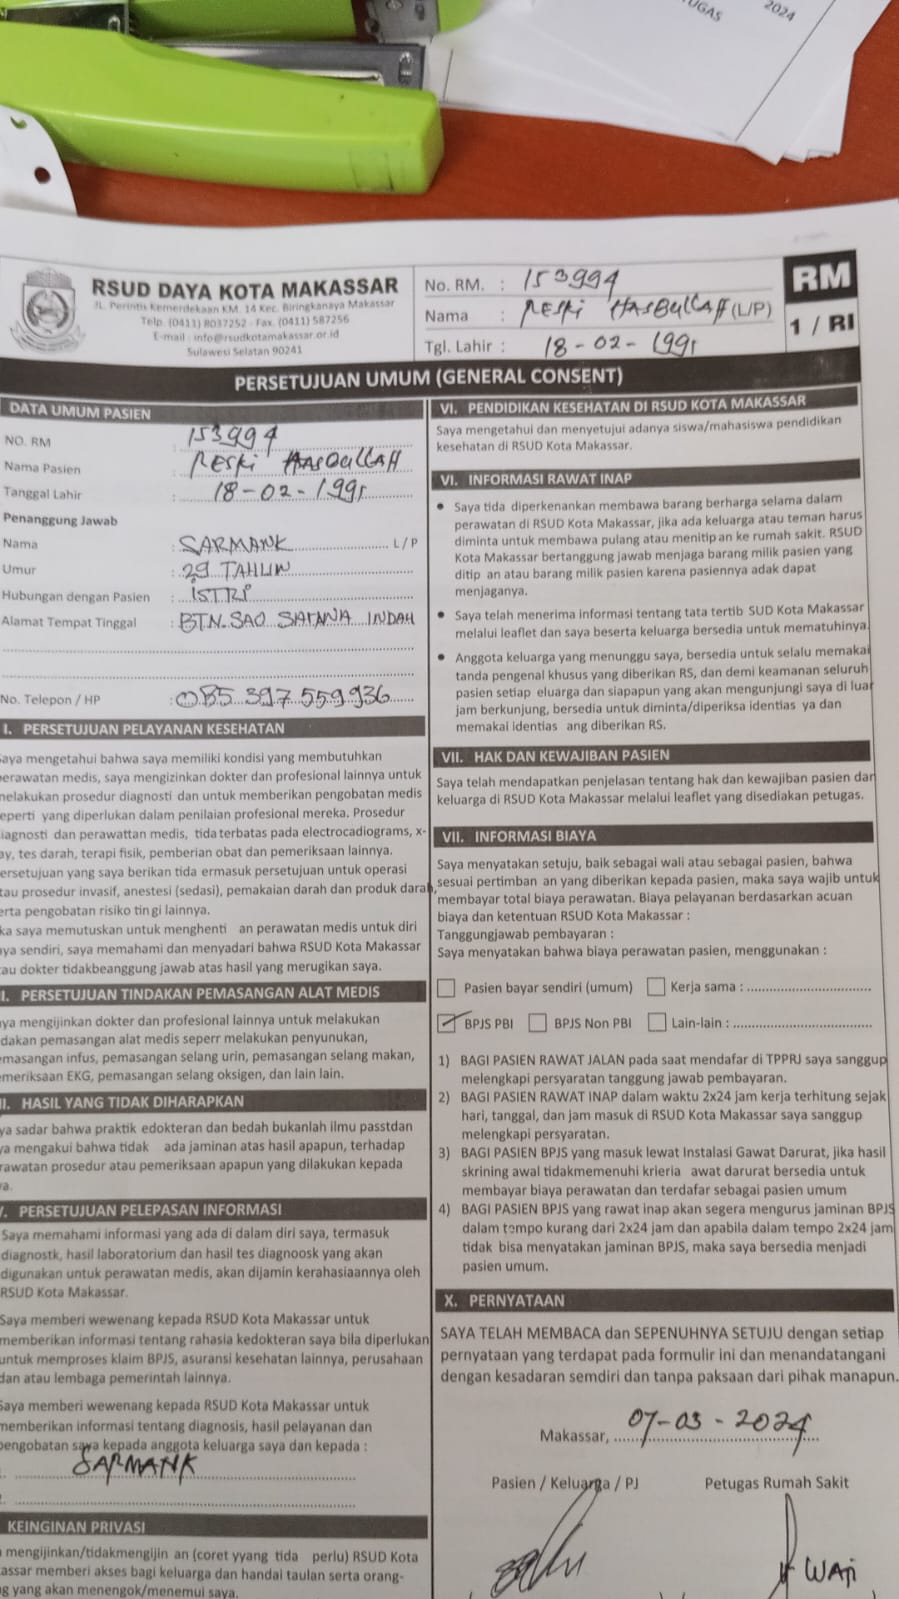 UGAS
2024
RSUD DAYA KOTA MAKASSAR
JL. Perintis Kemerdekaan KM. 14 Kec. Biringkanaya Makassar
Telp. (0411) 8037252 - Fax. (0411) 587256
E-mail : info@rsudkotamakassar.or.id
Sulawesi Selatan 90241
No. RM. : 153994
Nama : RESKi HASBullAH (L/P)
Tgl. Lahir : 18-02-1991
RM
1 / RI
PERSETUJUAN UMUM (GENERAL CONSENT)
DATA UMUM PASIEN
NO. RM : 153994
Nama Pasien : RESKi HASBullAH
Tanggal Lahir : 18-02-1991
Penanggung Jawab
Nama : SARMANK L/P
Umur : 29 TAHUN
Hubungan dengan Pasien : ISTRI
Alamat Tempat Tinggal : BTN. SAO SARANA INDAH
No. Telepon / HP : 085 397 559 936
I. PERSETUJUAN PELAYANAN KESEHATAN
aya mengetahui bahwa saya memiliki kondisi yang membutuhkan
erawatan medis, saya mengizinkan dokter dan profesional lainnya untuk
nelakukan prosedur diagnosti dan untuk memberikan pengobatan medis
eperti yang diperlukan dalam penilaian profesional mereka. Prosedur
iagnosti dan perawattan medis, tida terbatas pada electrocadiograms, x-
ay, tes darah, terapi fisik, pemberian obat dan pemeriksaan lainnya.
ersetujuan yang saya berikan tida ermasuk persetujuan untuk operasi
tau prosedur invasif, anestesi (sedasi), pemakaian darah dan produk darah,
erta pengobatan risiko tin gi lainnya.
ka saya memutuskan untuk menghenti an perawatan medis untuk diri
aya sendiri, saya memahami dan menyadari bahwa RSUD Kota Makassar
tau dokter tidakbeanggung jawab atas hasil yang merugikan saya.
I. PERSETUJUAN TINDAKAN PEMASANGAN ALAT MEDIS
ya mengijinkan dokter dan profesional lainnya untuk melakukan
dakan pemasangan alat medis seperr melakukan penyunukan,
emasangan infus, pemasangan selang urin, pemasangan selang makan,
emeriksaan EKG, pemasangan selang oksigen, dan lain lain.
II. HASIL YANG TIDAK DIHARAPKAN
ya sadar bahwa praktik edokteran dan bedah bukanlah ilmu passtdan
ya mengakui bahwa tidak ada jaminan atas hasil apapun, terhadap
rawatan prosedur atau pemeriksaan apapun yang dilakukan kepada
ya.
V. PERSETUJUAN PELEPASAN INFORMASI
Saya memahami informasi yang ada di dalam diri saya, termasuk
diagnostk, hasil laboratorium dan hasil tes diagnoosk yang akan
digunakan untuk perawatan medis, akan dijamin kerahasiaannya oleh
RSUD Kota Makassar.
Saya memberi wewenang kepada RSUD Kota Makassar untuk
memberikan informasi tentang rahasia kedokteran saya bila diperlukan
untuk memproses klaim BPJS, asuransi kesehatan lainnya, perusahaan
dan atau lembaga pemerintah lainnya.
Saya memberi wewenang kepada RSUD Kota Makassar untuk
memberikan informasi tentang diagnosis, hasil pelayanan dan
pengobatan saya kepada anggota keluarga saya dan kepada :
SARMANK
KEINGINAN PRIVASI
mengijinkan/tidakmengijin an (coret yyang tida perlu) RSUD Kota
assar memberi akses bagi keluarga dan handai taulan serta orang-
g yang akan menengok/menemui saya.
VI. PENDIDIKAN KESEHATAN DI RSUD KOTA MAKASSAR
Saya mengetahui dan menyetujui adanya siswa/mahasiswa pendidikan
kesehatan di RSUD Kota Makassar.
VI. INFORMASI RAWAT INAP
• Saya tida diperkenankan membawa barang berharga selama dalam
perawatan di RSUD Kota Makassar, jika ada keluarga atau teman harus
diminta untuk membawa pulang atau menitip an ke rumah sakit. RSUD
Kota Makassar bertanggung jawab menjaga barang milik pasien yang
ditip an atau barang milik pasien karena pasiennya adak dapat
menjaganya.
• Saya telah menerima informasi tentang tata tertib SUD Kota Makassar
melalui leaflet dan saya beserta keluarga bersedia untuk mematuhinya.
• Anggota keluarga yang menunggu saya, bersedia untuk selalu memakai
tanda pengenal khusus yang diberikan RS, dan demi keamanan seluruh
pasien setiap eluarga dan siapapun yang akan mengunjungi saya di luar
jam berkunjung, bersedia untuk diminta/diperiksa identias ya dan
memakai identias ang diberikan RS.
VII. HAK DAN KEWAJIBAN PASIEN
Saya telah mendapatkan penjelasan tentang hak dan kewajiban pasien dan
keluarga di RSUD Kota Makassar melalui leaflet yang disediakan petugas.
VII. INFORMASI BIAYA
Saya menyatakan setuju, baik sebagai wali atau sebagai pasien, bahwa
sesuai pertimban an yang diberikan kepada pasien, maka saya wajib untuk
membayar total biaya perawatan. Biaya pelayanan berdasarkan acuan
biaya dan ketentuan RSUD Kota Makassar :
Tanggungjawab pembayaran :
Saya menyatakan bahwa biaya perawatan pasien, menggunakan :
Pasien bayar sendiri (umum) Kerja sama :
BPJS PBI BPJS Non PBI Lain-lain :
1) BAGI PASIEN RAWAT JALAN pada saat mendafar di TPPRJ saya sanggup
melengkapi persyaratan tanggung jawab pembayaran.
2) BAGI PASIEN RAWAT INAP dalam waktu 2x24 jam kerja terhitung sejak
hari, tanggal, dan jam masuk di RSUD Kota Makassar saya sanggup
melengkapi persyaratan.
3) BAGI PASIEN BPJS yang masuk lewat Instalasi Gawat Darurat, jika hasil
skrining awal tidakmemenuhi krieria awat darurat bersedia untuk
membayar biaya perawatan dan terdafar sebagai pasien umum
4) BAGI PASIEN BPJS yang rawat inap akan segera mengurus jaminan BPJS
dalam tempo kurang dari 2x24 jam dan apabila dalam tempo 2x24 jam
tidak bisa menyatakan jaminan BPJS, maka saya bersedia menjadi
pasien umum.
X. PERNYATAAN
SAYA TELAH MEMBACA dan SEPENUHNYA SETUJU dengan setiap
pernyataan yang terdapat pada formulir ini dan menandatangani
dengan kesadaran semdiri dan tanpa paksaan dari pihak manapun.
Makassar, 07-03-2024
Pasien / Keluarga / PJ Petugas Rumah Sakit
WAJI